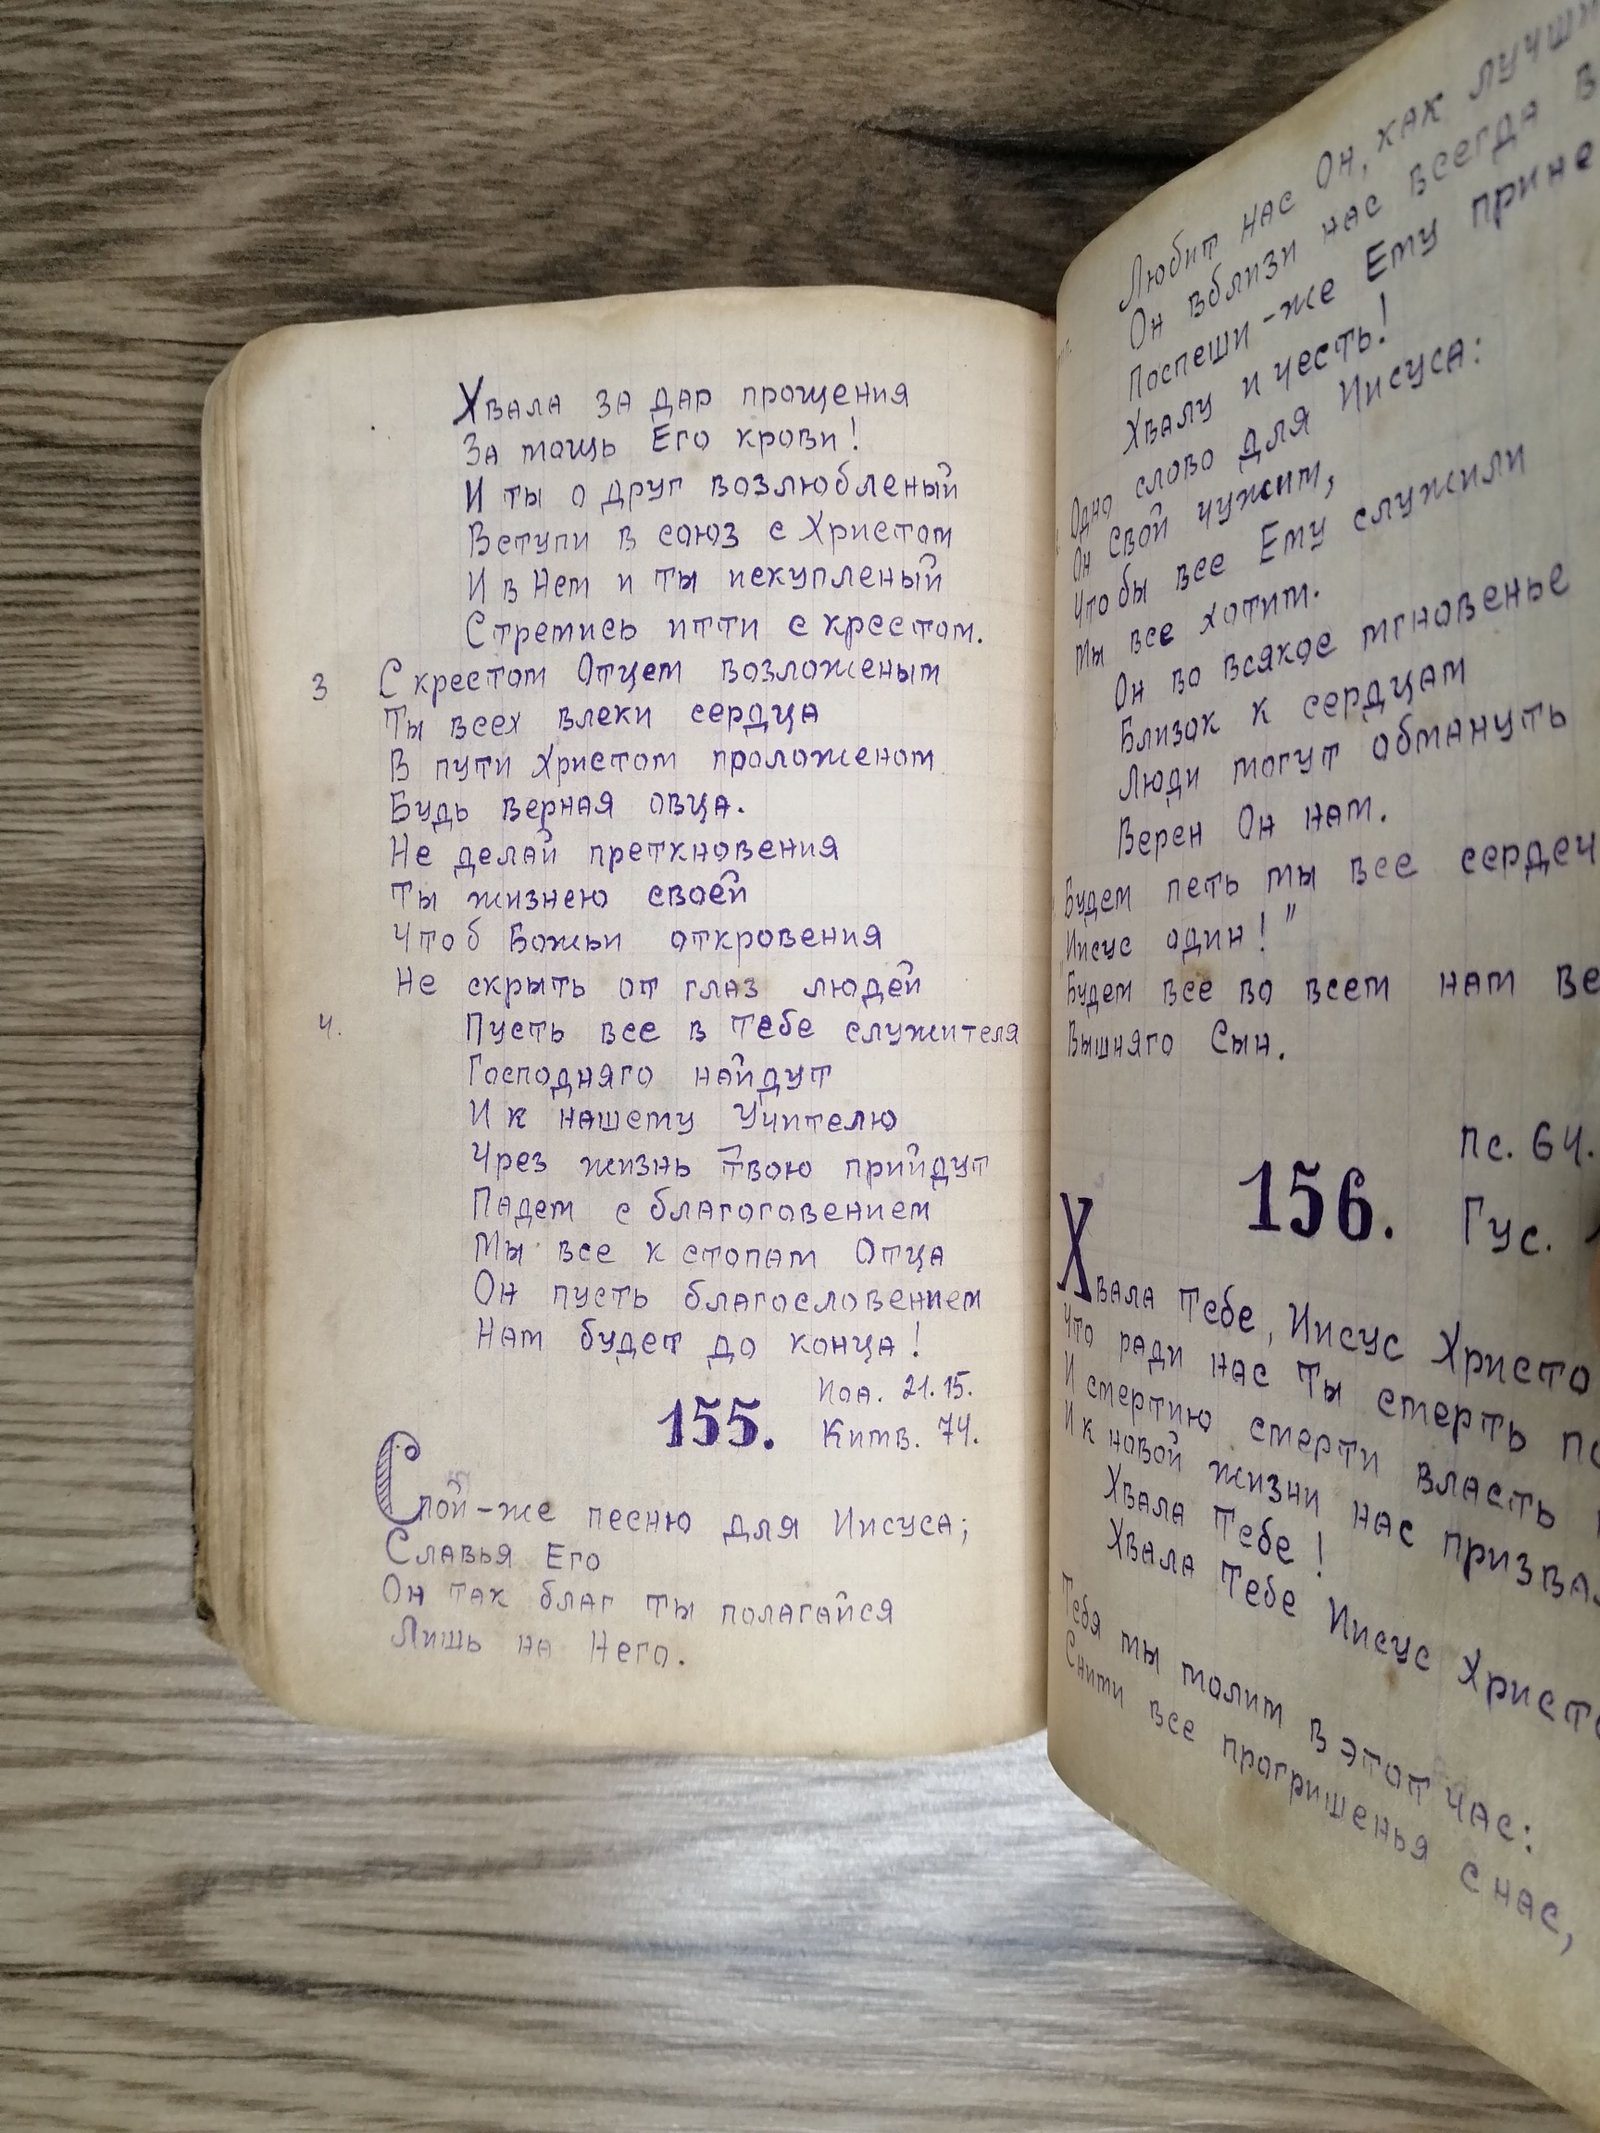 Хвала за дар прощения
За мощь Его крови!
И ты о друг возлюбленый
Вступи в союз с Христом
И в Нем и ты искупленый
Стремись итти с крестом.
3 С крестом Отцем возложеным
Ты всех влеки сердца
В пути Христом проложеном
Будь верная овца.
Не делай преткновения
Ты жизнею своей
Чтоб Божьи откровения
Не скрыть от глаз людей
4. Пусть все в тебе служителя
Господняго найдут
И к нашему Учителю
Чрез жизнь твою прийдут
Падем с благоговением
Мы все к стопам Отца
Он пусть благословением
Нам будет до конца!
Иоа. 21.15.
155. Китв. 74.
Спой-же песню для Иисуса;
Славья Его
Он так благ ты полагайся
Лишь на Него.
Любит нас Он, как лучши
Он вблизи нас всегда в
Поспеши-же Ему прине
Хвалу и честь!
Одно слово для Иисуса:
Он свой чужим,
Чтобы все Ему служили
Мы все хотим.
Он во всякое мгновенье
Близок к сердцам
Люди могут обмануть
Верен Он нам.
Будем петь мы все сердеч
Иисус один!"
Будем все во всем нам ве
Вышняго Сын.
пс. 64.
156. Гус.
Хвала Тебе, Иисус Христо
Что ради нас Ты смерть по
И смертию смерти власть
И к новой жизни нас призва
Хвала Тебе!
Хвала Тебе Иисус Христо
Тебя мы молим в этот час:
Сними все прогришенья с нас,